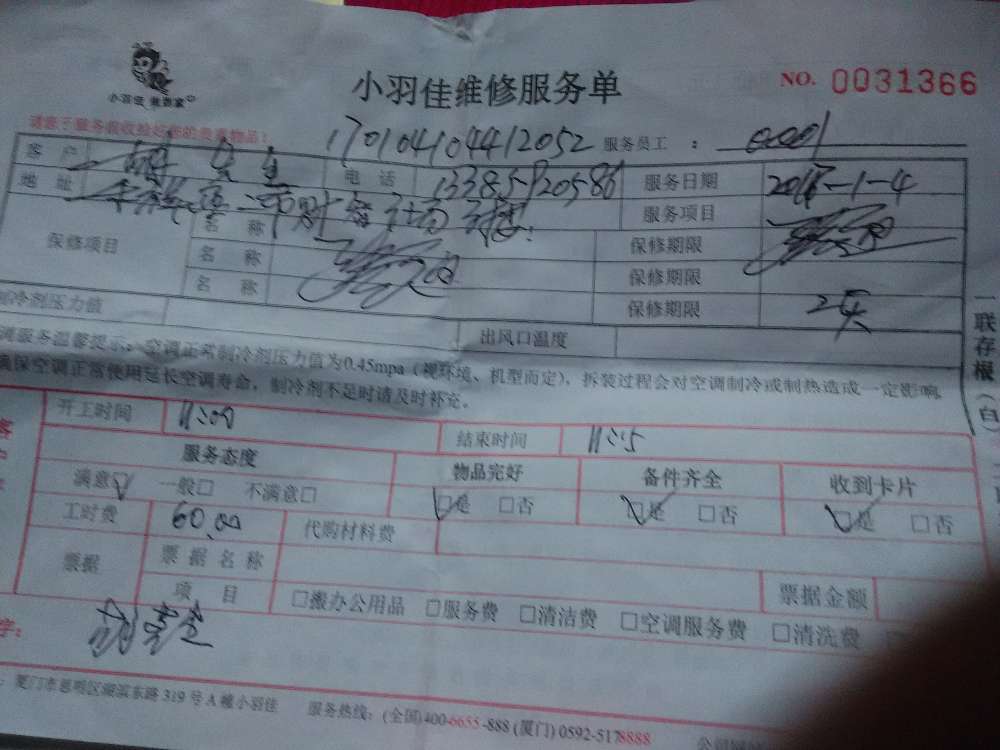 小羽佳维修服务单 NO. 0031366
小羽佳
17010410441 2052 服务员工 : 0001
客户 电话 服务日期
地址 服务项目
保修项目 名称 保修期限
名称 保修期限
名称 保修期限 2天
制冷剂压力值 出风口温度
空调正常制冷剂压力值为0.45mpa（视环境、机型而定），拆装过程会对空调制冷或制热造成一定影响，
确保空调正常使用延长空调寿命，制冷剂不足时请及时补充。
开工时间 11:00 结束时间 11:15
服务态度 物品完好 备件齐全 收到卡片
满意□ 一般□ 不满意□ □是 □否 □是 □否 □是 □否
工时费 60.00 代购材料费
票据 票据名称 票据金额
项目 □搬办公用品 □服务费 □清洁费 □空调服务费 □清洗费
厦门市思明区湖滨东路319号A楼小羽佳 服务热线：(全国)400-6655-888 (厦门) 0592-5178888
一联存根（白）